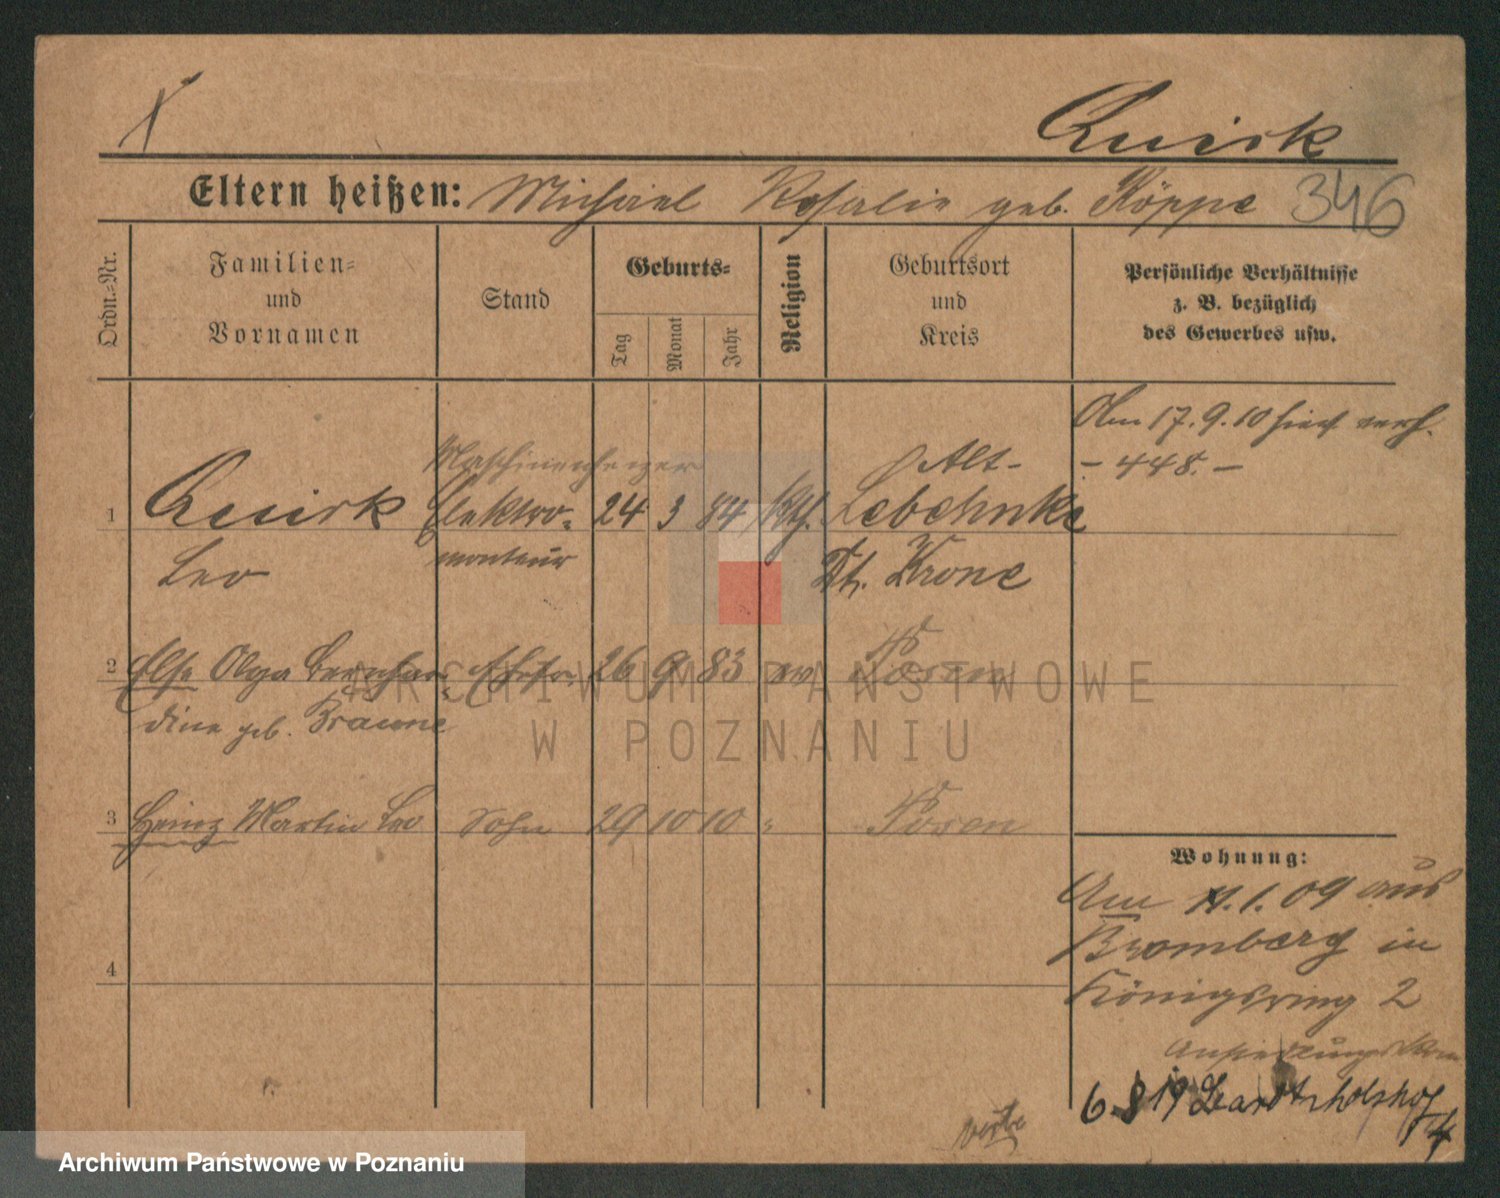 Quirk
Eltern heißen: Michael Rosalie geb. Köppe 346
Ordn.-Nr.
Familien-
und
Vornamen
Stand
Geburts-
Tag
Monat
Jahr
Religion
Geburtsort
und
Kreis
Persönliche Verhältnisse
z. B. bezüglich
des Gewerbes usw.
Am 17.9.10 hier verh.
- 448. -
Maschinenheizer
Alt-
1 Quirk Elektro- 24 3 84 kth. Lebehnke
Leo monteur Dt. Krone
2 Else Olga Bernhar- Ehefr. 26 9 83 ev Posen
dine geb. Braune
3 Heinz Martin Leo Sohn 29 10 10 " Posen
4
Wohnung:
Am 11.1.09 aus
Bromberg in
Königsring 2
6.8.19
ARCHIWUM PAŃSTWOWE
W POZNANIU
Archiwum Państwowe w Poznaniu